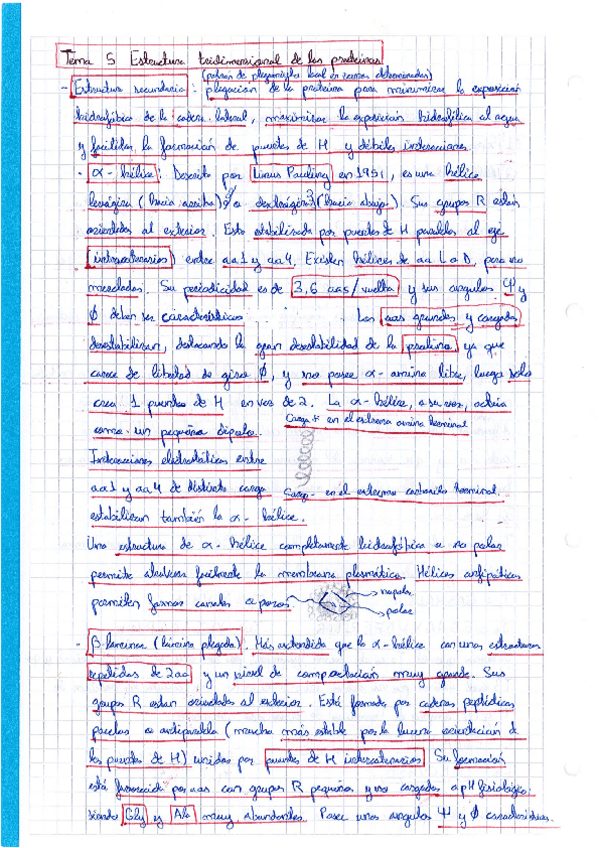 Tema 5 Estructura tridimensional de las proteinas
(patrón de plegamiento local en zonas determinadas)
- Estructura secundaria: plegación de la proteína para minimizar la exposición
hidrofóbica de la cadena lateral, maximizar la exposición hidrofílica al agua
y facilitar la formación de puentes de H y débiles interacciones
- α-hélice: Descrita por Linus Pauling en 1951, es una hélice
levógira (hacia arriba) o dextrógira (hacia abajo). Sus grupos R están
orientados al exterior. Esta estabilizada por puentes de H paralelos al eje
(intracatenarios) entre aa1 y aa4. Existen hélices de aa L o D, pero no
mezclados. Su periodicidad es de 3,6 aas/vuelta y sus angulos Ψ y
Φ deben ser característicos. Los aas grandes y cargados
desestabilizan, destacando la gran desestabilidad de la prolina ya que
carece de libertad de giro Φ, y no posee α-amina libre, luego solo
crea 1 puentes de H en vez de 2. La α-hélice, a su vez, actúa
como un pequeño dipolo.
Carga + en el extremo amino terminal
Interacciones electrostáticas entre
aa1 y aa4 de distinta carga
Carga - en el extremo carboxilo terminal.
estabilizan también la α-hélice.
Una estructura de α-hélice completamente hidrofóbica o no polar
permite atravesar facilmente la membrana plasmática. Hélices anfipáticas
permiten formar canales o poros
no polar
polar
- β-lamina (lámina plegada). Más extendida que la α-hélice con unas estructuras
repetidas de 2aa y un nivel de compactación muy grande. Sus
grupos R estan orientados al exterior. Está formada por cadenas peptídicas
paralelas o antiparalela (mucho más estable por la buena orientación de
los puentes de H) unidas por puentes de H intercatenarios. Su formación
está favorecida por aas con grupos R pequeños y no cargados a pH fisiológico
siendo Gly y Ala muy abundantes. Posee unos angulos Ψ y Φ característicos.